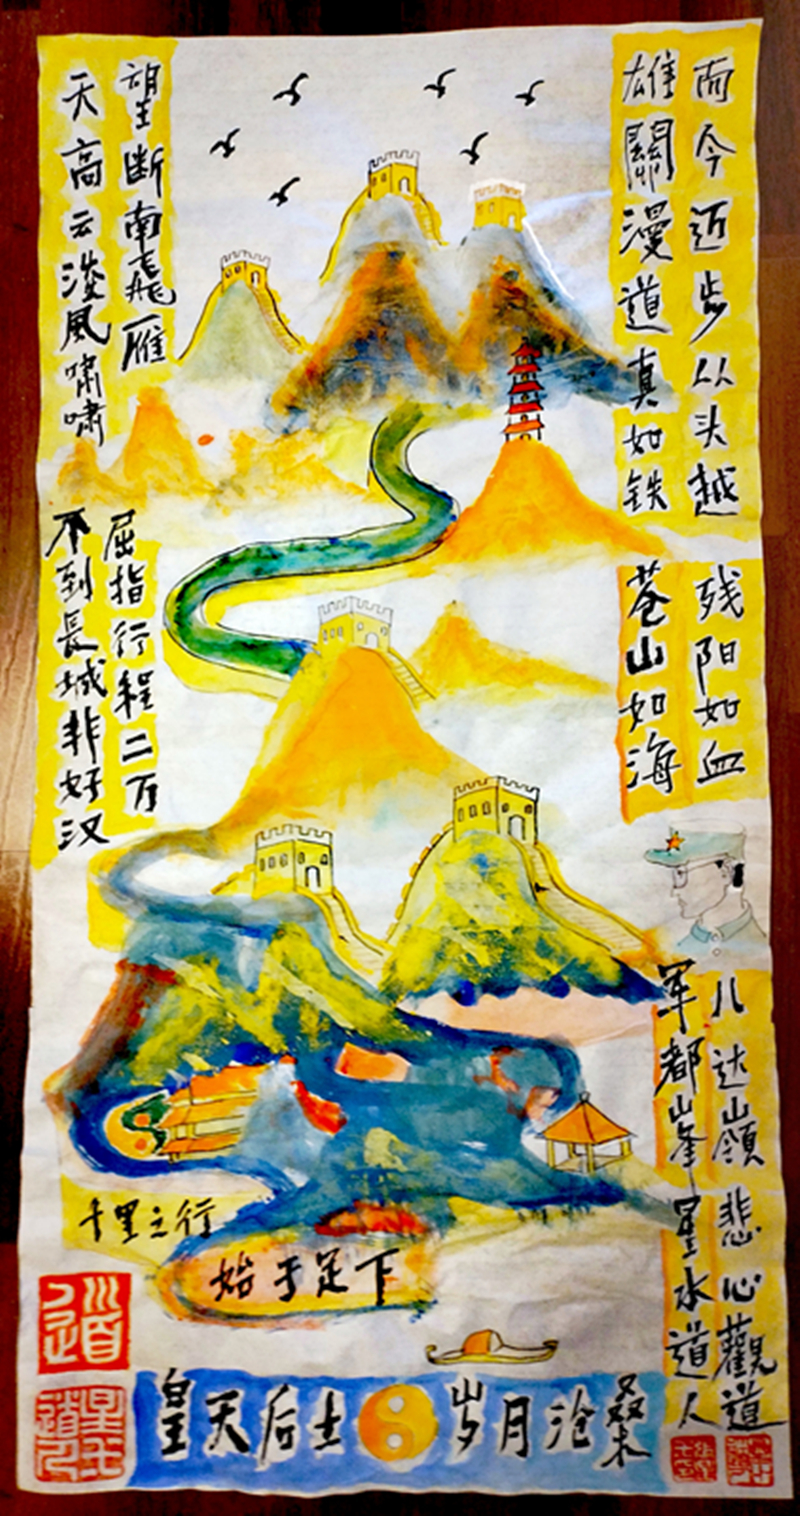 天高云淡風啸啸
望断南飛雁
雄關漫道真如铁
而今迈步从头越
不到長城非好汉
屈指行程二万
苍山如海
残阳如血
八达山嶺悲心觀道
军都山峯星水道人
千里之行
始于足下
道
皇天后土岁月沧桑